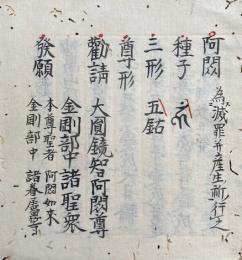 阿閦 為滅罪并産生祈行之
種子
三形 五鈷
尊形
勸請 大圓鏡智阿閦尊
金剛部中諸聖衆
發願 本尊聖者 阿閦如来
金剛部中 諸眷属等